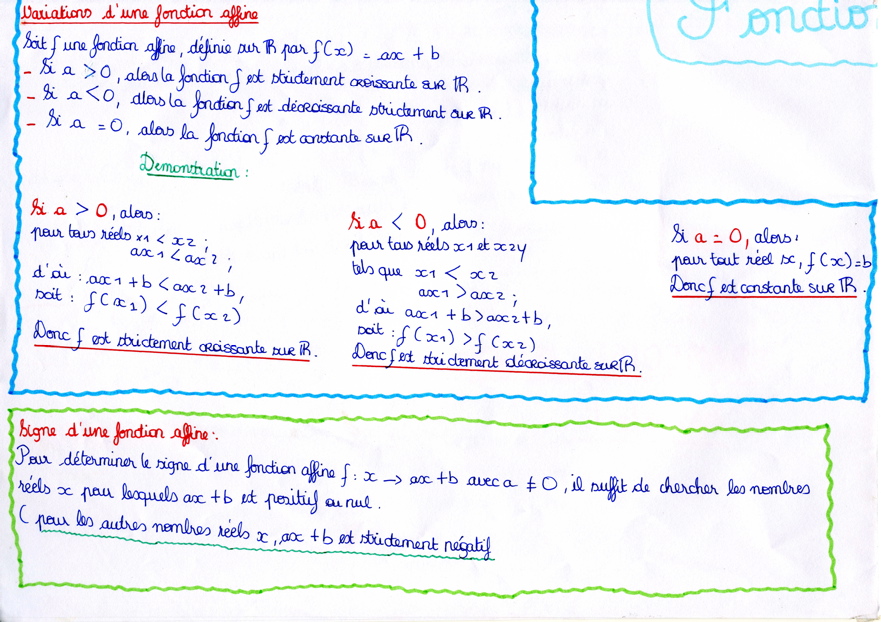 Variations d'une fonction affine
Fonctio
Soit f une fonction affine, définie sur ℝ par f(x) = ax + b
- Si a > 0, alors la fonction f est strictement croissante sur ℝ.
- Si a < 0, alors la fonction f est décroissante strictement sur ℝ.
- Si a = 0, alors la fonction f est constante sur ℝ.
Demonstration :
Si a > 0, alors :
pour tous réels x1 < x2 ;
ax1 < ax2 ;
d'où : ax1 + b < ax2 + b,
soit : f(x1) < f(x2)
Donc f est strictement croissante sur ℝ.
Si a < 0, alors :
pour tous réels x1 et x2y
tels que x1 < x2
ax1 > ax2 ;
d'où ax1 + b > ax2 + b,
soit : f(x1) > f(x2)
Donc f est strictement décroissante sur ℝ.
Si a = 0, alors :
pour tout réel x, f(x) = b
Donc f est constante sur ℝ.
Signe d'une fonction affine :.
Pour déterminer le signe d'une fonction affine f : x → ax + b avec a ≠ 0, il suffit de chercher les nombres
réels x pour lesquels ax + b est positif ou nul.
( pour les autres nombres réels x, ax + b est strictement négatif